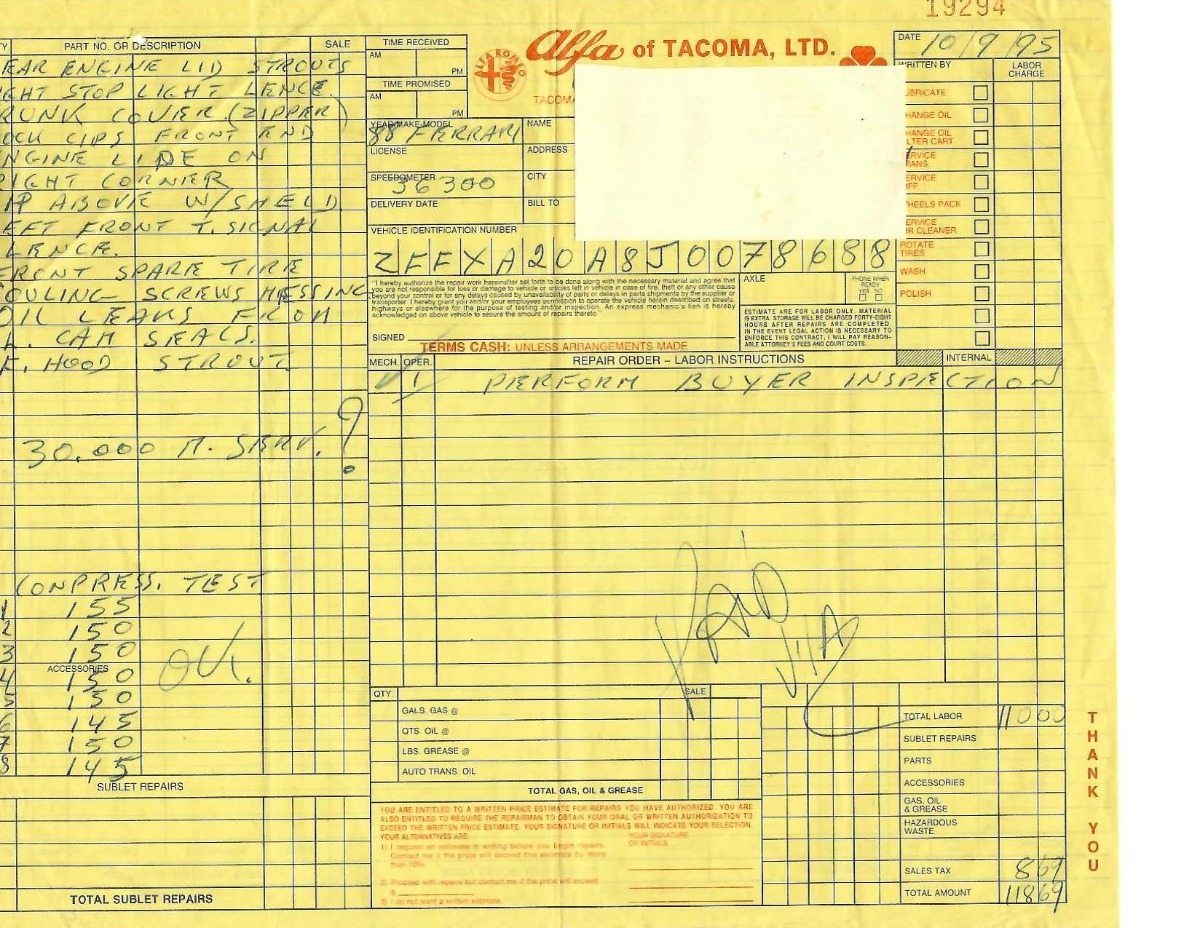 19294
PART NO. OR DESCRIPTION SALE
EAR ENGINE LID STROUTS
GHT STOP LIGHT LENCE.
RUNK COVER (ZIPPER)
OCK CIPS FRONT END
NGINE LIDE ON
RIGHT CORNER
IP ABOVE W/SHELD
EFT FRONT T. SIGNAL
LENCE.
FRONT SPARE TIRE
OULING SCREWS MESSING
OIL LEAKS FROM
CAM SEALS.
HOOD STROUT
?
30.000 M. SERV.
COMPRESS. TEST
1 155
2 150
3 150
ACCESSORIES
4 150
5 150
6 145
7 150
8 145
OK.
SUBLET REPAIRS
TOTAL SUBLET REPAIRS
TIME RECEIVED
AM
PM
TIME PROMISED
AM
PM
ALFA ROMEO
Alfa of TACOMA, LTD.
TACOMA
YEAR/MAKE/MODEL
88 FERRARI
NAME
LICENSE
ADDRESS
SPEEDOMETER
36300
CITY
DELIVERY DATE
BILL TO
VEHICLE IDENTIFICATION NUMBER
ZFFXA20A8J0078688
"I hereby authorize the repair work hereinafter set forth to be done along with the necessary material and agree that
you are not responsible for loss or damage to vehicle or articles left in vehicle in case of fire, theft or any other cause
beyond your control or for any delays caused by unavailability of parts or delays in parts shipments by the supplier or
transporter. I hereby grant you and/or your employees permission to operate the vehicle herein described on streets,
highways or elsewhere for the purpose of testing and/or inspection. An express mechanic's lien is hereby
acknowledged on above vehicle to secure the amount of repairs thereto."
SIGNED
TERMS CASH: UNLESS ARRANGEMENTS MADE
AXLE
PHONE WHEN
READY
YES NO
ESTIMATE ARE FOR LABOR ONLY, MATERIAL
IS EXTRA. STORAGE WILL BE CHARGED FORTY-EIGHT
HOURS AFTER REPAIRS ARE COMPLETED.
IN THE EVENT LEGAL ACTION IS NECESSARY TO
ENFORCE THIS CONTRACT, I WILL PAY REASON-
ABLE ATTORNEY'S FEES AND COURT COSTS.
MECH. OPER. REPAIR ORDER – LABOR INSTRUCTIONS INTERNAL
1 PERFORM BUYER INSPECTION
PAID
VISA
DATE 10/9/95
WRITTEN BY
LABOR
CHARGE
UBRICATE
HANGE OIL
HANGE OIL
LTER CART
ERVICE
RANS
ERVICE
IFF
WHEELS PACK
SERVICE
IR CLEANER
ROTATE
TIRES
WASH
POLISH
QTY. SALE
GALS. GAS @
QTS. OIL @
LBS. GREASE @
AUTO TRANS. OIL
TOTAL GAS, OIL & GREASE
YOU ARE ENTITLED TO A WRITTEN PRICE ESTIMATE FOR REPAIRS YOU HAVE AUTHORIZED. YOU ARE
ALSO ENTITLED TO REQUIRE THE REPAIRMAN TO OBTAIN YOUR ORAL OR WRITTEN AUTHORIZATION TO
EXCEED THE WRITTEN PRICE ESTIMATE. YOUR SIGNATURE OR INITIALS WILL INDICATE YOUR SELECTION.
YOUR ALTERNATIVES ARE:
YOUR SIGNATURE
OR INITIALS
1) I request an estimate in writing before you begin repairs.
Contact me if the price will exceed this estimate by more
than 10%
2) Proceed with repairs but contact me if the price will exceed
$
3) I do not want a written estimate.
TOTAL LABOR 110 00
SUBLET REPAIRS
PARTS
ACCESSORIES
GAS, OIL
& GREASE
HAZARDOUS
WASTE
SALES TAX 8 69
TOTAL AMOUNT 118 69
THANK YOU